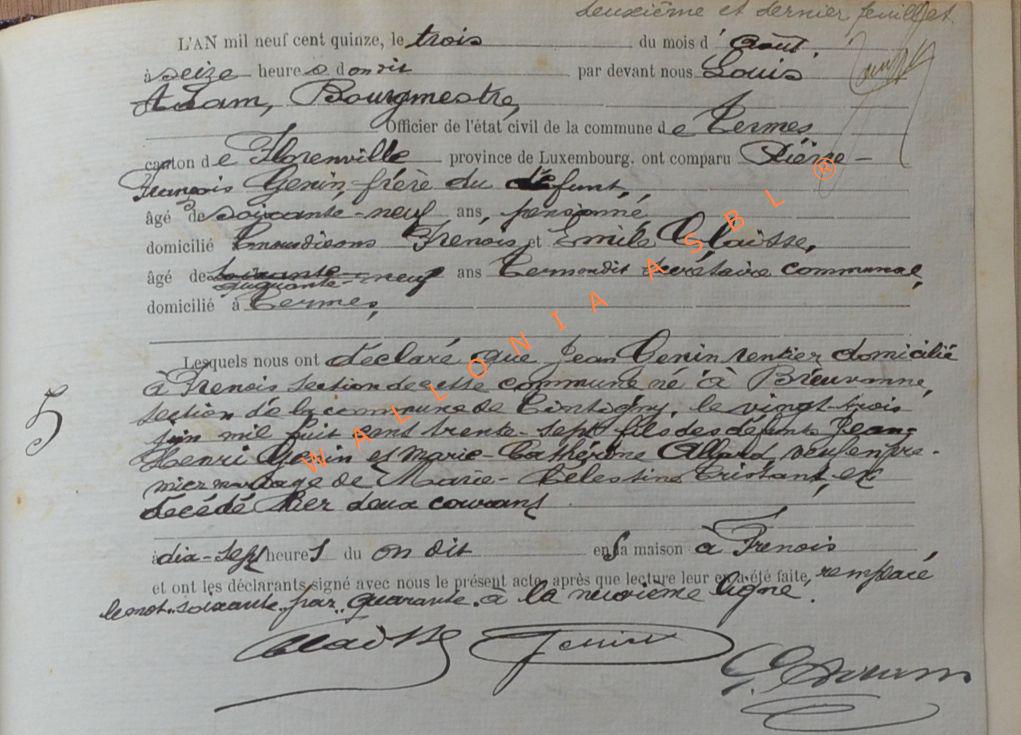 deuxième et dernier feuillet
L'AN mil neuf cent quinze, le trois du mois d' août,
à seize heures dondit par devant nous Louis
Adam, Bourgmestre,
Officier de l'état civil de la commune de Termes
canton de Florenville province de Luxembourg, ont comparu Pierre-
François Genin, frère du défunt,
âgé de soixante-neuf ans, pensionné
domicilié Frenois et Emile Claisse,
âgé de soixante-neuf ans secrétaire communal,
quarante
domicilié à Termes,
Lesquels nous ont déclaré que Jean Genin rentier domicilié
à Frenois section de cette commune né à Breuvanne,
section de la commune de Tintigny, le vingt-trois
juin mil huit cent trente-sept fils des défunts Jean-
Henri Genin et Marie-Cathérine Allard, veuf en pre-
mier mariage de Marie-Célestine Tristant, est
décédé hier deux courant
à dix-sept heures du on dit en sa maison à Frenois
et ont les déclarants signé avec nous le présent acte, après que lecture leur en a été faite, remplacé
le mot "soixante" par "quarante" à la neuvième ligne.
5
Claisse Genin
WALLONIA ASBL ®